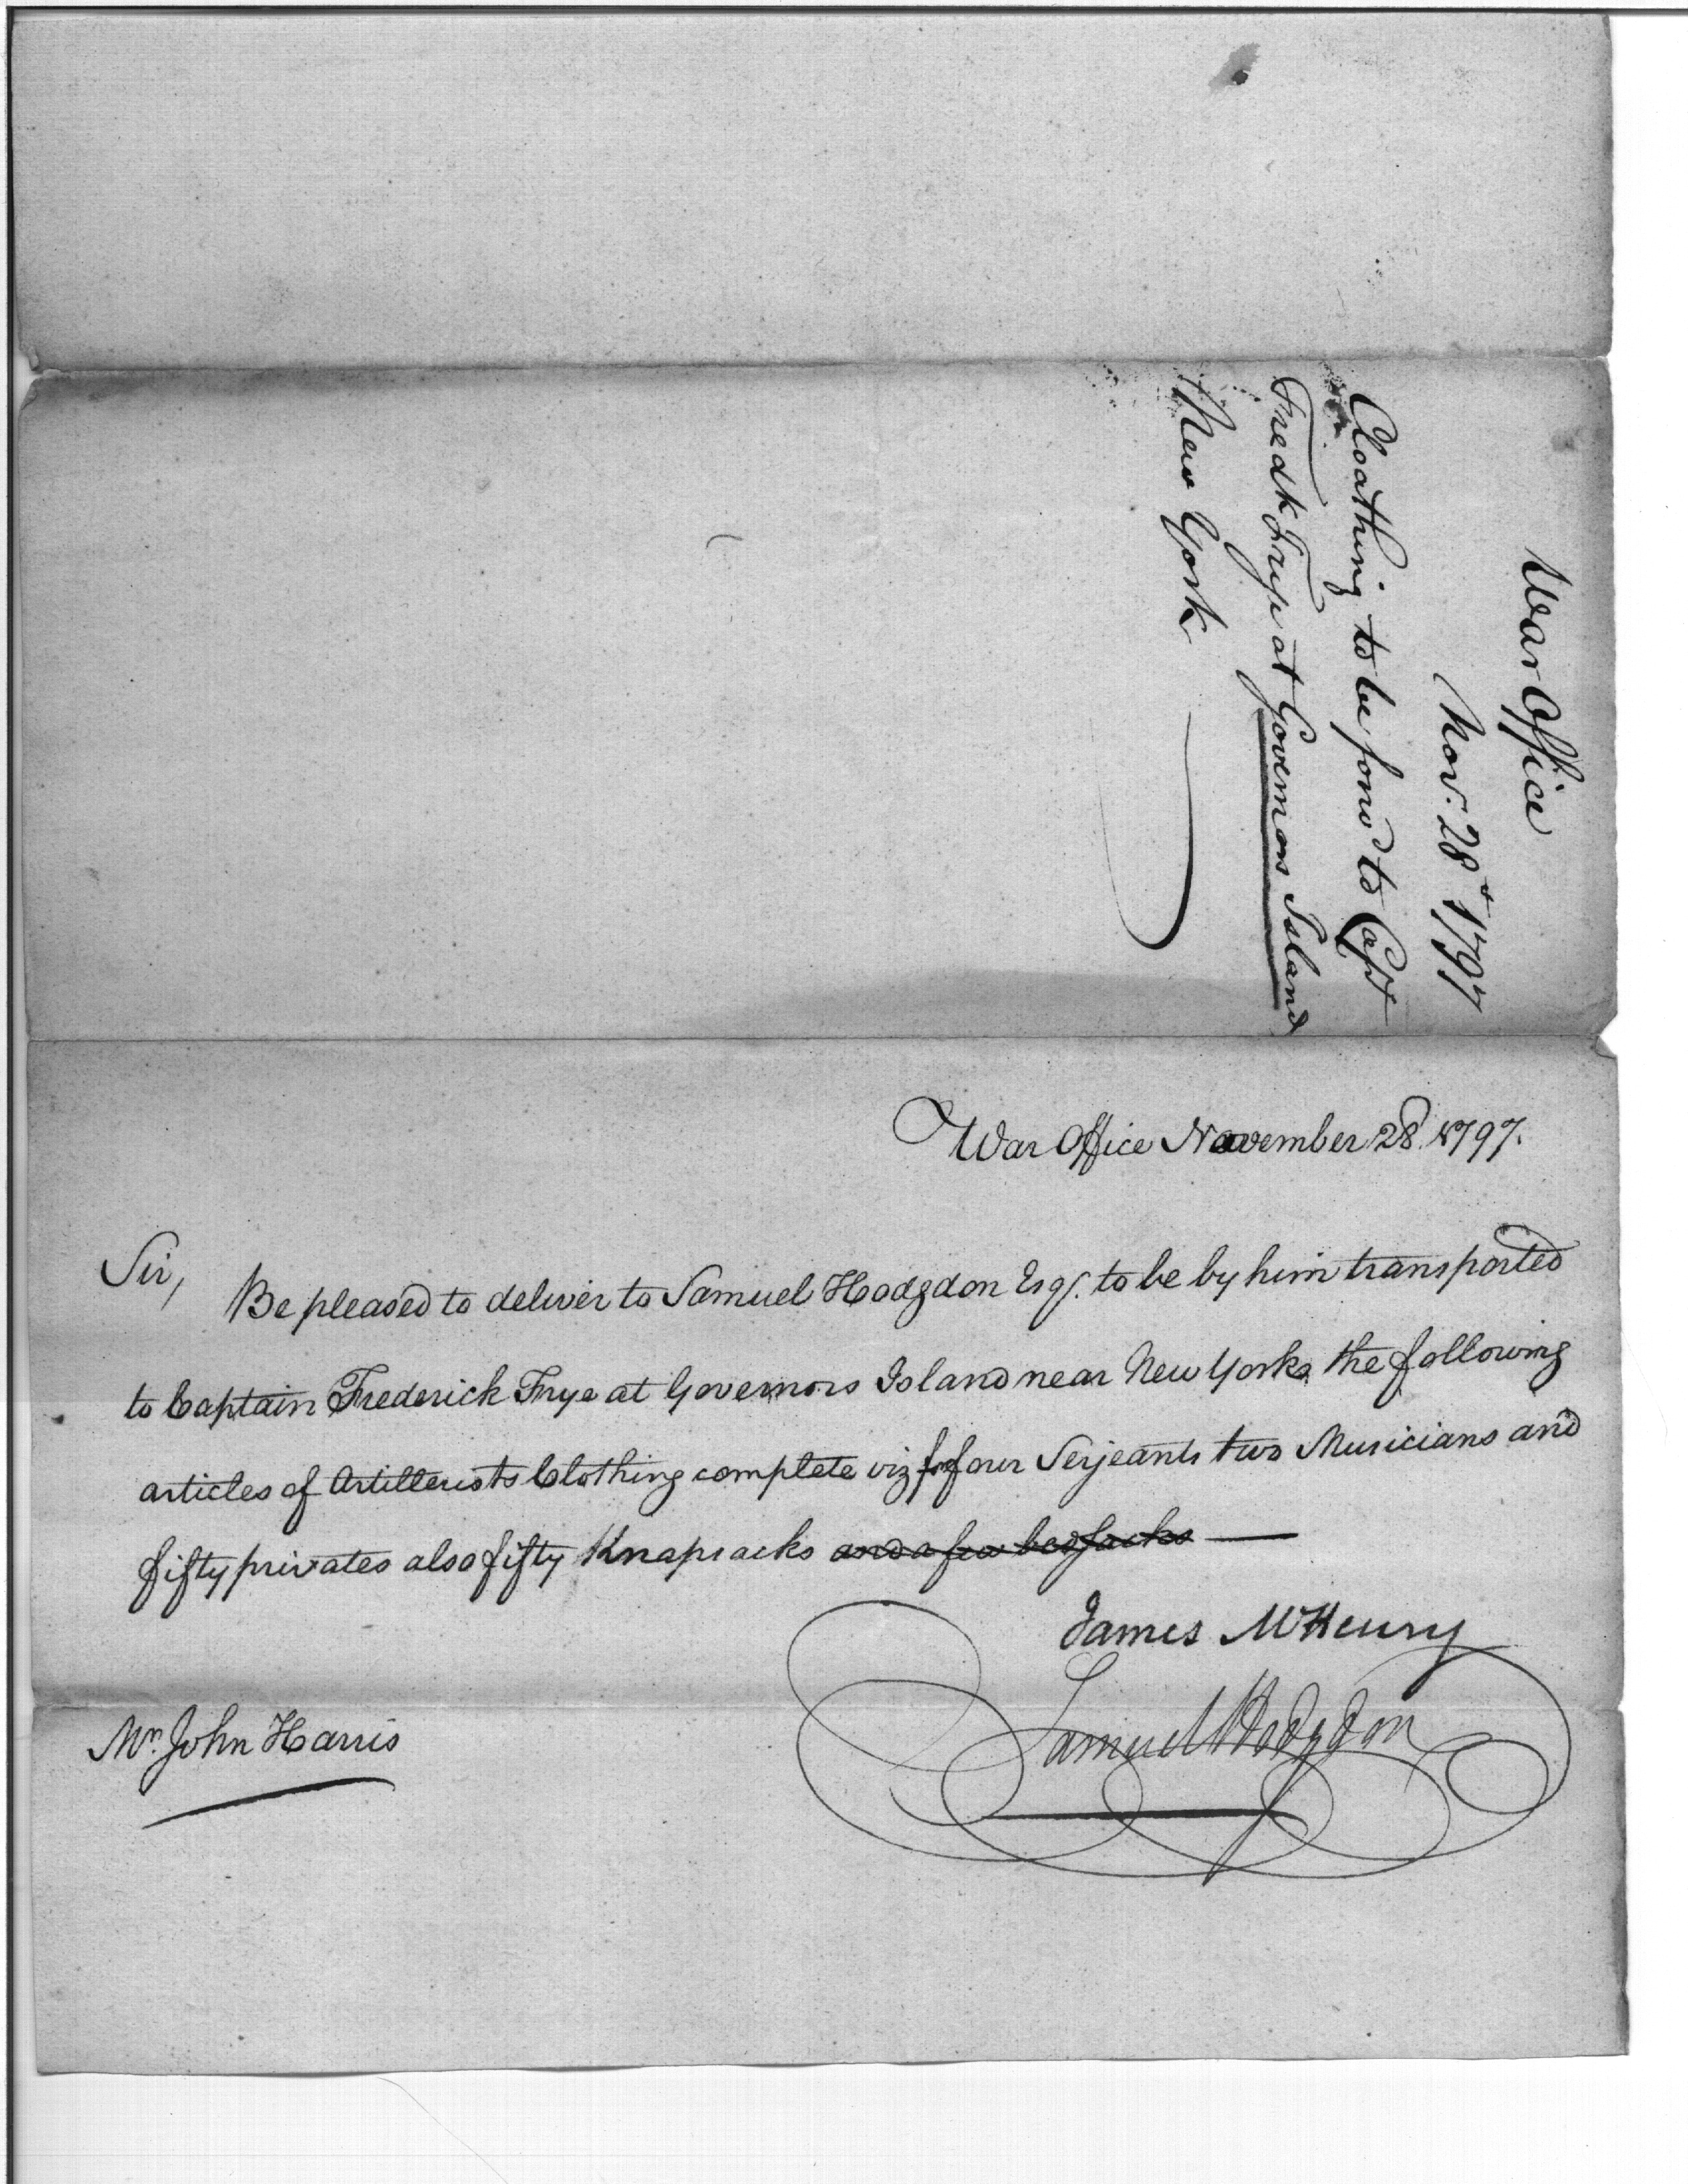 War Office
Nov. 28th 1797
Cloathing to be forw'd to Capt
Fredk Frye at Governors Island
New York
War Office November 28. 1797.
Sir,
Be pleased to deliver to Samuel Hodgdon Esqr. to be by him transported
to Captain Frederick Frye at Governors Island near New York, the following
articles of Artillerists Clothing complete viz for four Serjeants two Musicians and
fifty privates also fifty Knapsacks and a few bedsacks
James McHenry
Samuel Hodgdon
Mr. John Harris